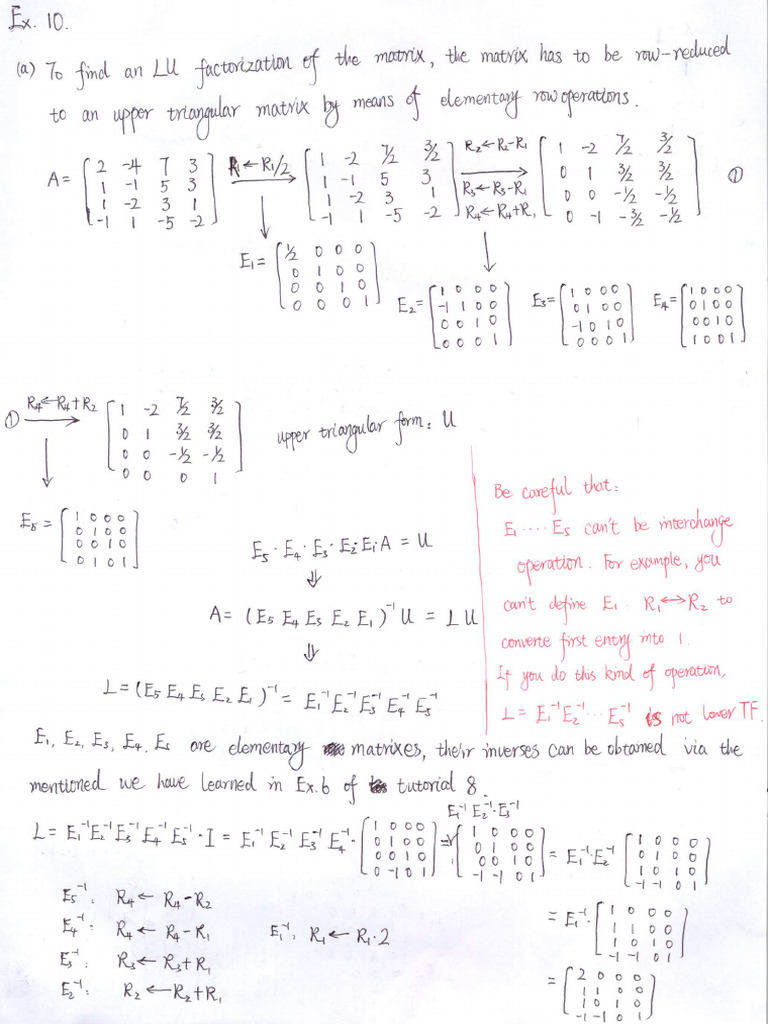 Ex. 10.
(a) To find an LU factorization of the matrix, the matrix has to be row-reduced
to an upper triangular matrix by means of elementary row operations.
A = [2 -4 7 3; 1 -1 5 3; 1 -2 3 1; -1 1 -5 -2] R1 ← R1/2 → [1 -2 7/2 3/2; 1 -1 5 3; 1 -2 3 1; -1 1 -5 -2] R2 ← R2-R1 R3 ← R3-R1 R4 ← R4+R1 → [1 -2 7/2 3/2; 0 1 3/2 3/2; 0 0 -1/2 -1/2; 0 -1 -3/2 -1/2] ①
E1 = [1/2 0 0 0; 0 1 0 0; 0 0 1 0; 0 0 0 1]
E2 = [1 0 0 0; -1 1 0 0; 0 0 1 0; 0 0 0 1] E3 = [1 0 0 0; 0 1 0 0; -1 0 1 0; 0 0 0 1] E4 = [1 0 0 0; 0 1 0 0; 0 0 1 0; 1 0 0 1]
① R4 ← R4+R2 → [1 -2 7/2 3/2; 0 1 3/2 3/2; 0 0 -1/2 -1/2; 0 0 0 1] upper triangular form: U
E5 = [1 0 0 0; 0 1 0 0; 0 0 1 0; 0 1 0 1]
E5 · E4 · E3 · E2 · E1 A = U
⇓
A = (E5 E4 E3 E2 E1)⁻¹ U = L U
⇓
L = (E5 E4 E3 E2 E1)⁻¹ = E1⁻¹ E2⁻¹ E3⁻¹ E4⁻¹ E5⁻¹
Be careful that:
E1 ···· E5 can't be interchange
operation. For example, you
can't define E1. R1 ↔ R2 to
converte first entry into 1.
If you do this kind of operation,
L = E1⁻¹ E2⁻¹ ··· E5⁻¹ is not lower TF.
E1, E2, E3, E4, E5 are elementary matrixes, their inverses can be obtained via the
mentioned we have learned in Ex.6 of tutorial 8.
E1⁻¹ E2⁻¹ · E3⁻¹
L = E1⁻¹ E2⁻¹ E3⁻¹ E4⁻¹ E5⁻¹ · I = E1⁻¹ E2⁻¹ E3⁻¹ E4⁻¹ · [1 0 0 0; 0 1 0 0; 0 0 1 0; 0 -1 0 1] = [1 0 0 0; 0 1 0 0; 0 0 1 0; -1 -1 0 1] = E1⁻¹ E2⁻¹ [1 0 0 0; 0 1 0 0; 1 0 1 0; -1 -1 0 1]
E5⁻¹: R4 ← R4-R2
E4⁻¹: R4 ← R4-R1 E1⁻¹: R1 ← R1·2
E3⁻¹: R3 ← R3+R1
E2⁻¹: R2 ← R2+R1
= E1⁻¹ · [1 0 0 0; 1 1 0 0; 1 0 1 0; -1 -1 0 1]
= [2 0 0 0; 1 1 0 0; 1 0 1 0; -1 -1 0 1]